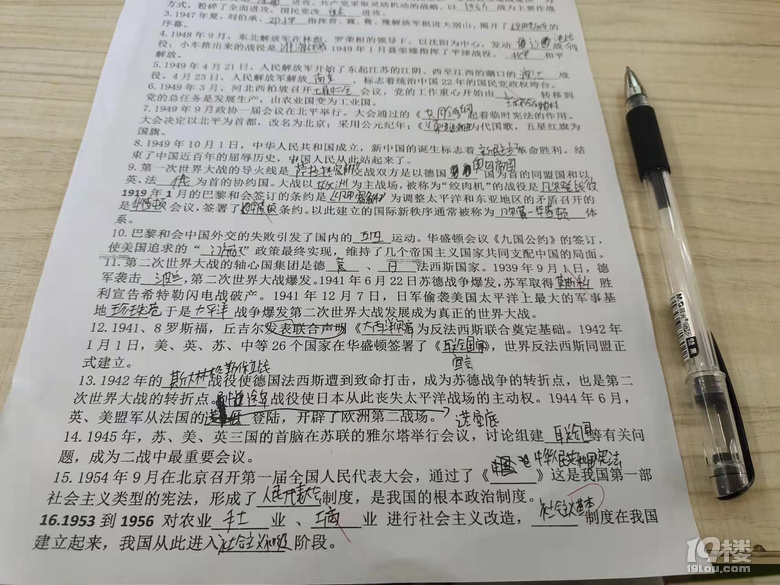 方式，粉碎了全面进攻，国民党改
3.1947年夏，刘伯承、邓小平 指挥晋、冀、鲁、豫解放军挺进大别山，揭开了
序幕。
4.1948年9月，东北解放军在林彪、罗荣桓的领导下，以沈阳为中心，发动
役；小车推出来的战役是 淮海战役 1949年1月聂荣臻指挥了平津战役， 北平 和平
解放。
5.1949年4月21日，人民解放军开始了东起江苏的江阴、西至江西的湖口的 渡江 战
役。4月23日，人民解放军解放 南京 ，标志着统治中国22年的国民党政权垮台。
6.1949年3月，河北西柏坡召开 会议，党的工作重心开始由 转移到
党的总任务是发展生产，由农业国变为工业国。
7.1949年9月政协一届会议在北平举行。大会通过的《共同纲领》起着临时宪法的作用。
大会决定以北平为首都，改名为北京；采用公元纪年；《 》为代国歌，五星红旗为
国旗。
8.1949年10月1日，中华人民共和国成立，新中国的诞生标志着 革命胜利。结
束了中国近百年的屈辱历史，中国人民从此站起来了。
9.第一次世界大战的导火线是 交战双方是以德国 国为首的同盟国和以
英、法 俄 为首的协约国。大战以 欧洲 为主战场，被称为“绞肉机”的战役是 凡尔登战役
1919年1月的巴黎和会签订的条约是 为调整太平洋和东亚地区的矛盾召开的
是 华盛顿 会议，签署了 条约。以此建立的国际新秩序通常被称为 凡尔赛—华盛顿 体
系。
10.巴黎和会中国外交的失败引发了国内的 五四 运动。华盛顿会议《九国公约》的签订，
使美国追求的“ ”政策最终实现，维持了几个帝国主义国家共同支配中国的局面。
11.第二次世界大战的轴心国集团是德 意 、 日 法西斯国家。1939年9月1日，德
军袭击 波兰 ，第二次世界大战爆发。1941年6月22日苏德战争爆发，苏军取得 莫斯科 胜
利宣告希特勒闪电战破产。1941年12月7日，日军偷袭美国太平洋上最大的军事基
地 珍珠港 于是 太平洋 战争爆发第二次世界大战发展成为真正的世界大战。
12.1941、8罗斯福，丘吉尔发表联合声明《大西洋宪章》为反法西斯联合奠定基础。1942年
1月1日，美、英、苏、中等26个国家在华盛顿签署了《联合国家
宣言》，世界反法西斯同盟正
式建立。
13.1942年的 战役使德国法西斯遭到致命打击，成为苏德战争的转折点，也是第二
次世界大战的转折点。中途岛 战役使日本从此丧失太平洋战场的主动权。1944年6月，
英、美盟军从法国的 登陆，开辟了欧洲第二战场。
14.1945年，苏、美、英三国的首脑在苏联的雅尔塔举行会议，讨论组建 联合国 等有关问
题，成为二战中最重要会议。
15.1954年9月在北京召开第一届全国人民代表大会，通过了《中华人民共和国宪法》这是我国第一部
社会主义类型的宪法，形成了 人民代表大会 制度，是我国的根本政治制度。
16.1953到1956对农业 手工 业 、 工商 业 进行社会主义改造， 社会主义基本 制度在我国
建立起来，我国从此进入 社会主义初级 阶段。
19楼
19lou.com